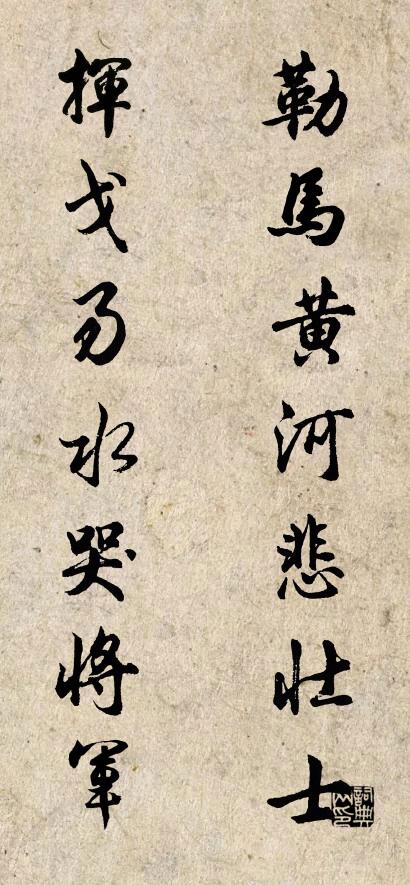 勒馬黄河悲壯士
揮戈易水哭將軍